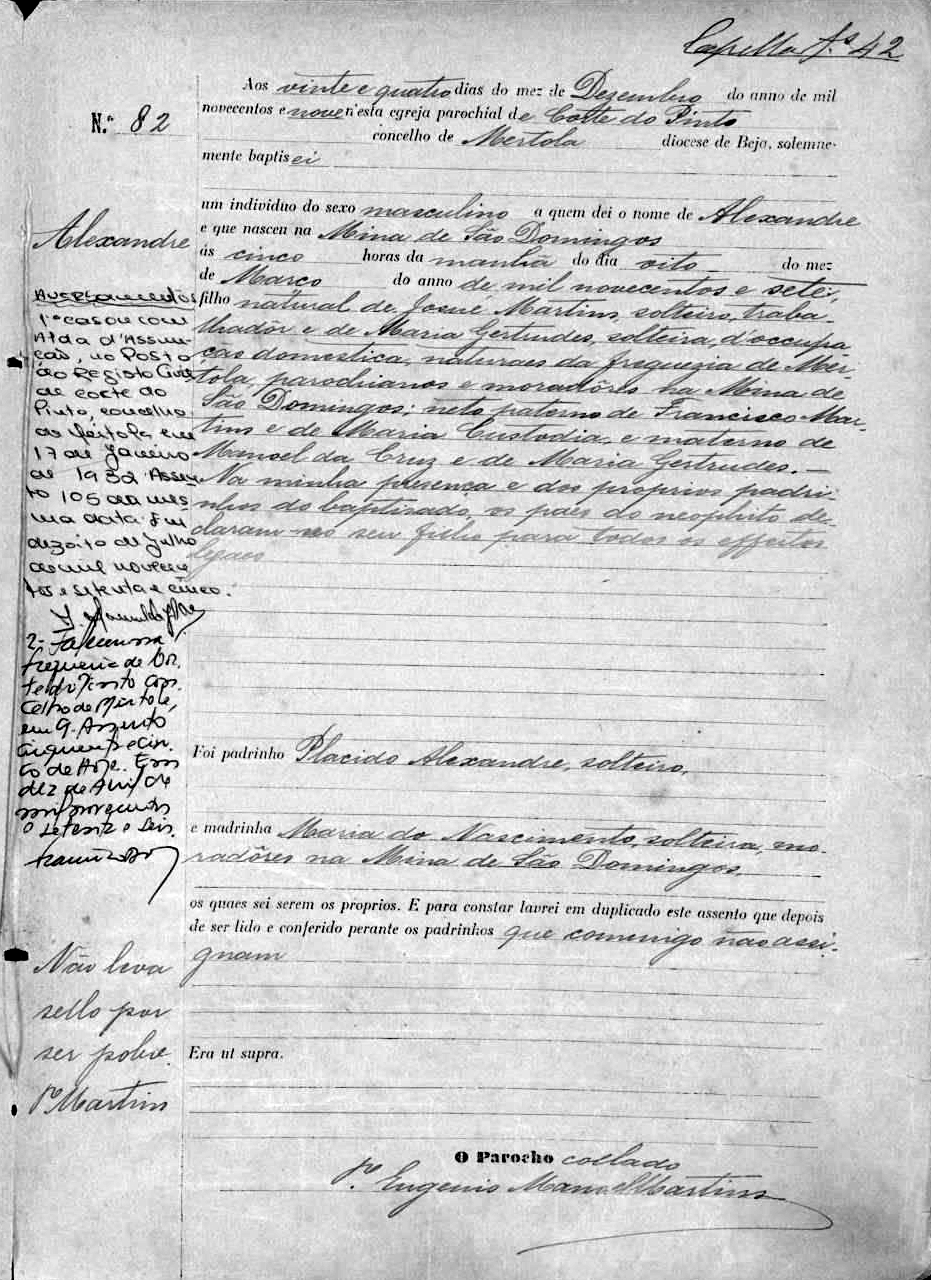 Capella fs 42
Aos vinte e quatro dias do mez de Dezembro do anno de mil
novecentos e nove n'esta egreja parochial de Corte do Pinto
concelho de Mertola diocese de Beja, solemne-
mente baptisei
N.º 82
um individuo do sexo masculino a quem dei o nome de Alexandre
e que nasceu na Mina de São Domingos
ás cinco horas da manhã do dia oito do mez
de Março do anno de mil novecentos e sete,
filho natural de Josué Martins, solteiro, traba-
lhadôr e de Maria Gertrudes, solteira, d'occupa
ção domestica, naturaes da freguezia de Mér-
tola, parochianos e moradôres na Mina de
São Domingos; neto paterno de Francisco Mar-
tins e de Maria Custodia, e materno de
Manoel da Cruz e de Maria Gertrudes. —
Na minha presença e dos proprios padri-
nhos do baptisado, os paes do neophito de-
claram-no seu filho para todos os effeitos
legaes
Foi padrinho Placido Alexandre, solteiro,
e madrinha Maria do Nascimento, solteira, mo-
radôres na Mina de São Domingos,
os quaes sei serem os proprios. E para constar lavrei em duplicado este assento que depois
de ser lido e conferido perante os padrinhos que commigo não assi-
gnam
Era ut supra.
O Parocho collado
Pe. Eugenio Manoel Martins
Alexandre
Averbamentos
1º casou com
Alda d'Assun-
ção, no Posto
do Registo Civil
de Corte do
Pinto, concelho
de Mértola em
17 de Janeiro
de 1932 Assen
to 105 da mes
ma data. Em
dezoito de Julho
de mil novecen
tos e setenta e cinco.
2- Faleceu na
freguesia de Cor
te do Pinto con
celho de Mértola,
em 9. Assento
cinquenta e cin
co de Hoje. Em
dez de Abril de
mil novecentos
e setenta e seis.
Não leva
sello por
ser pobre.
Pe Martins